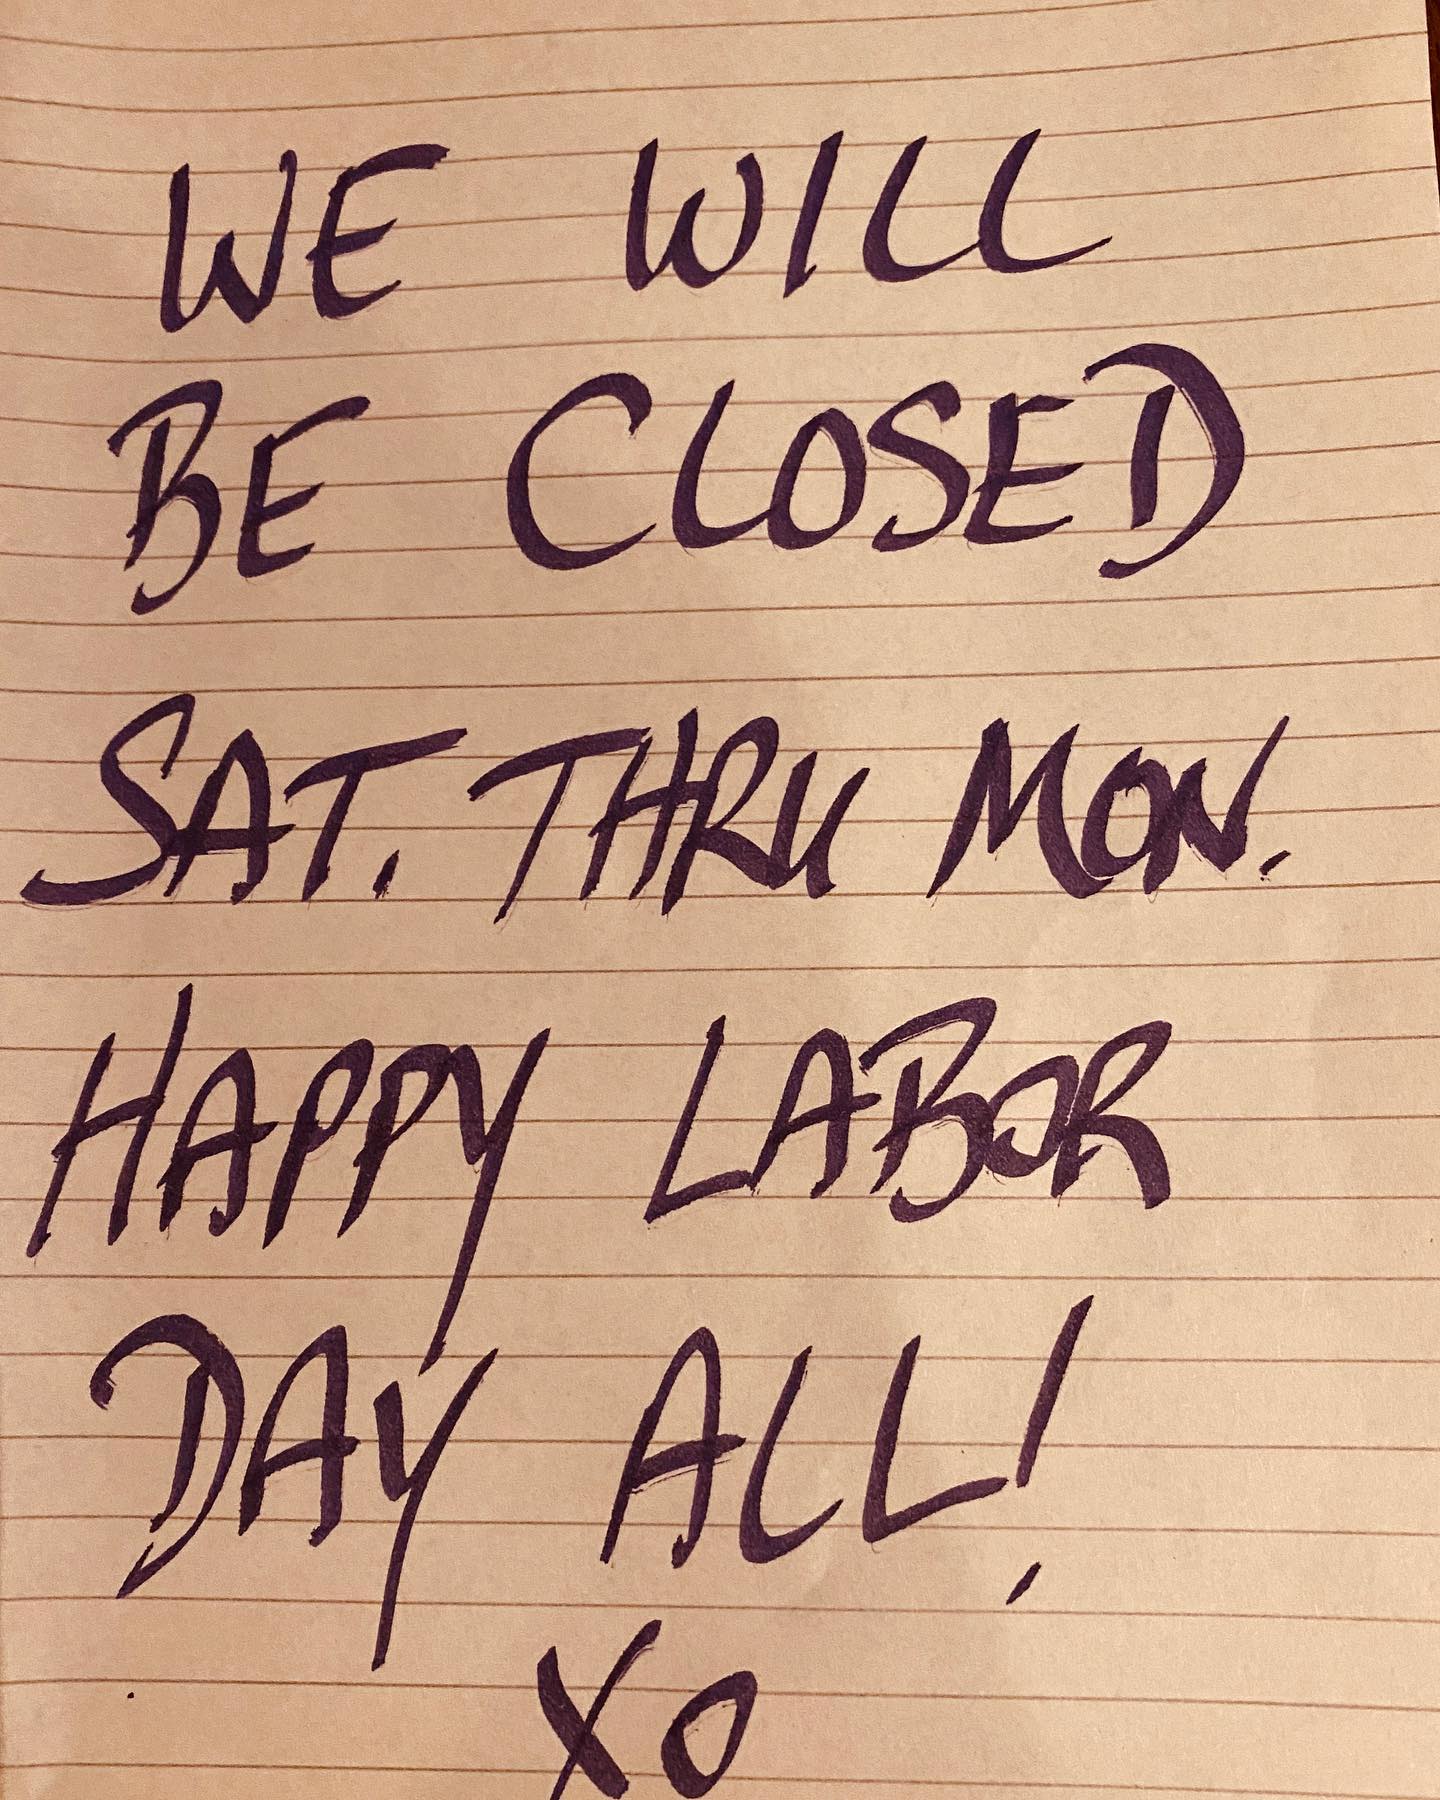 WE WILL
BE CLOSED
SAT. THRU MON.
HAPPY LABOR
DAY ALL!
XO